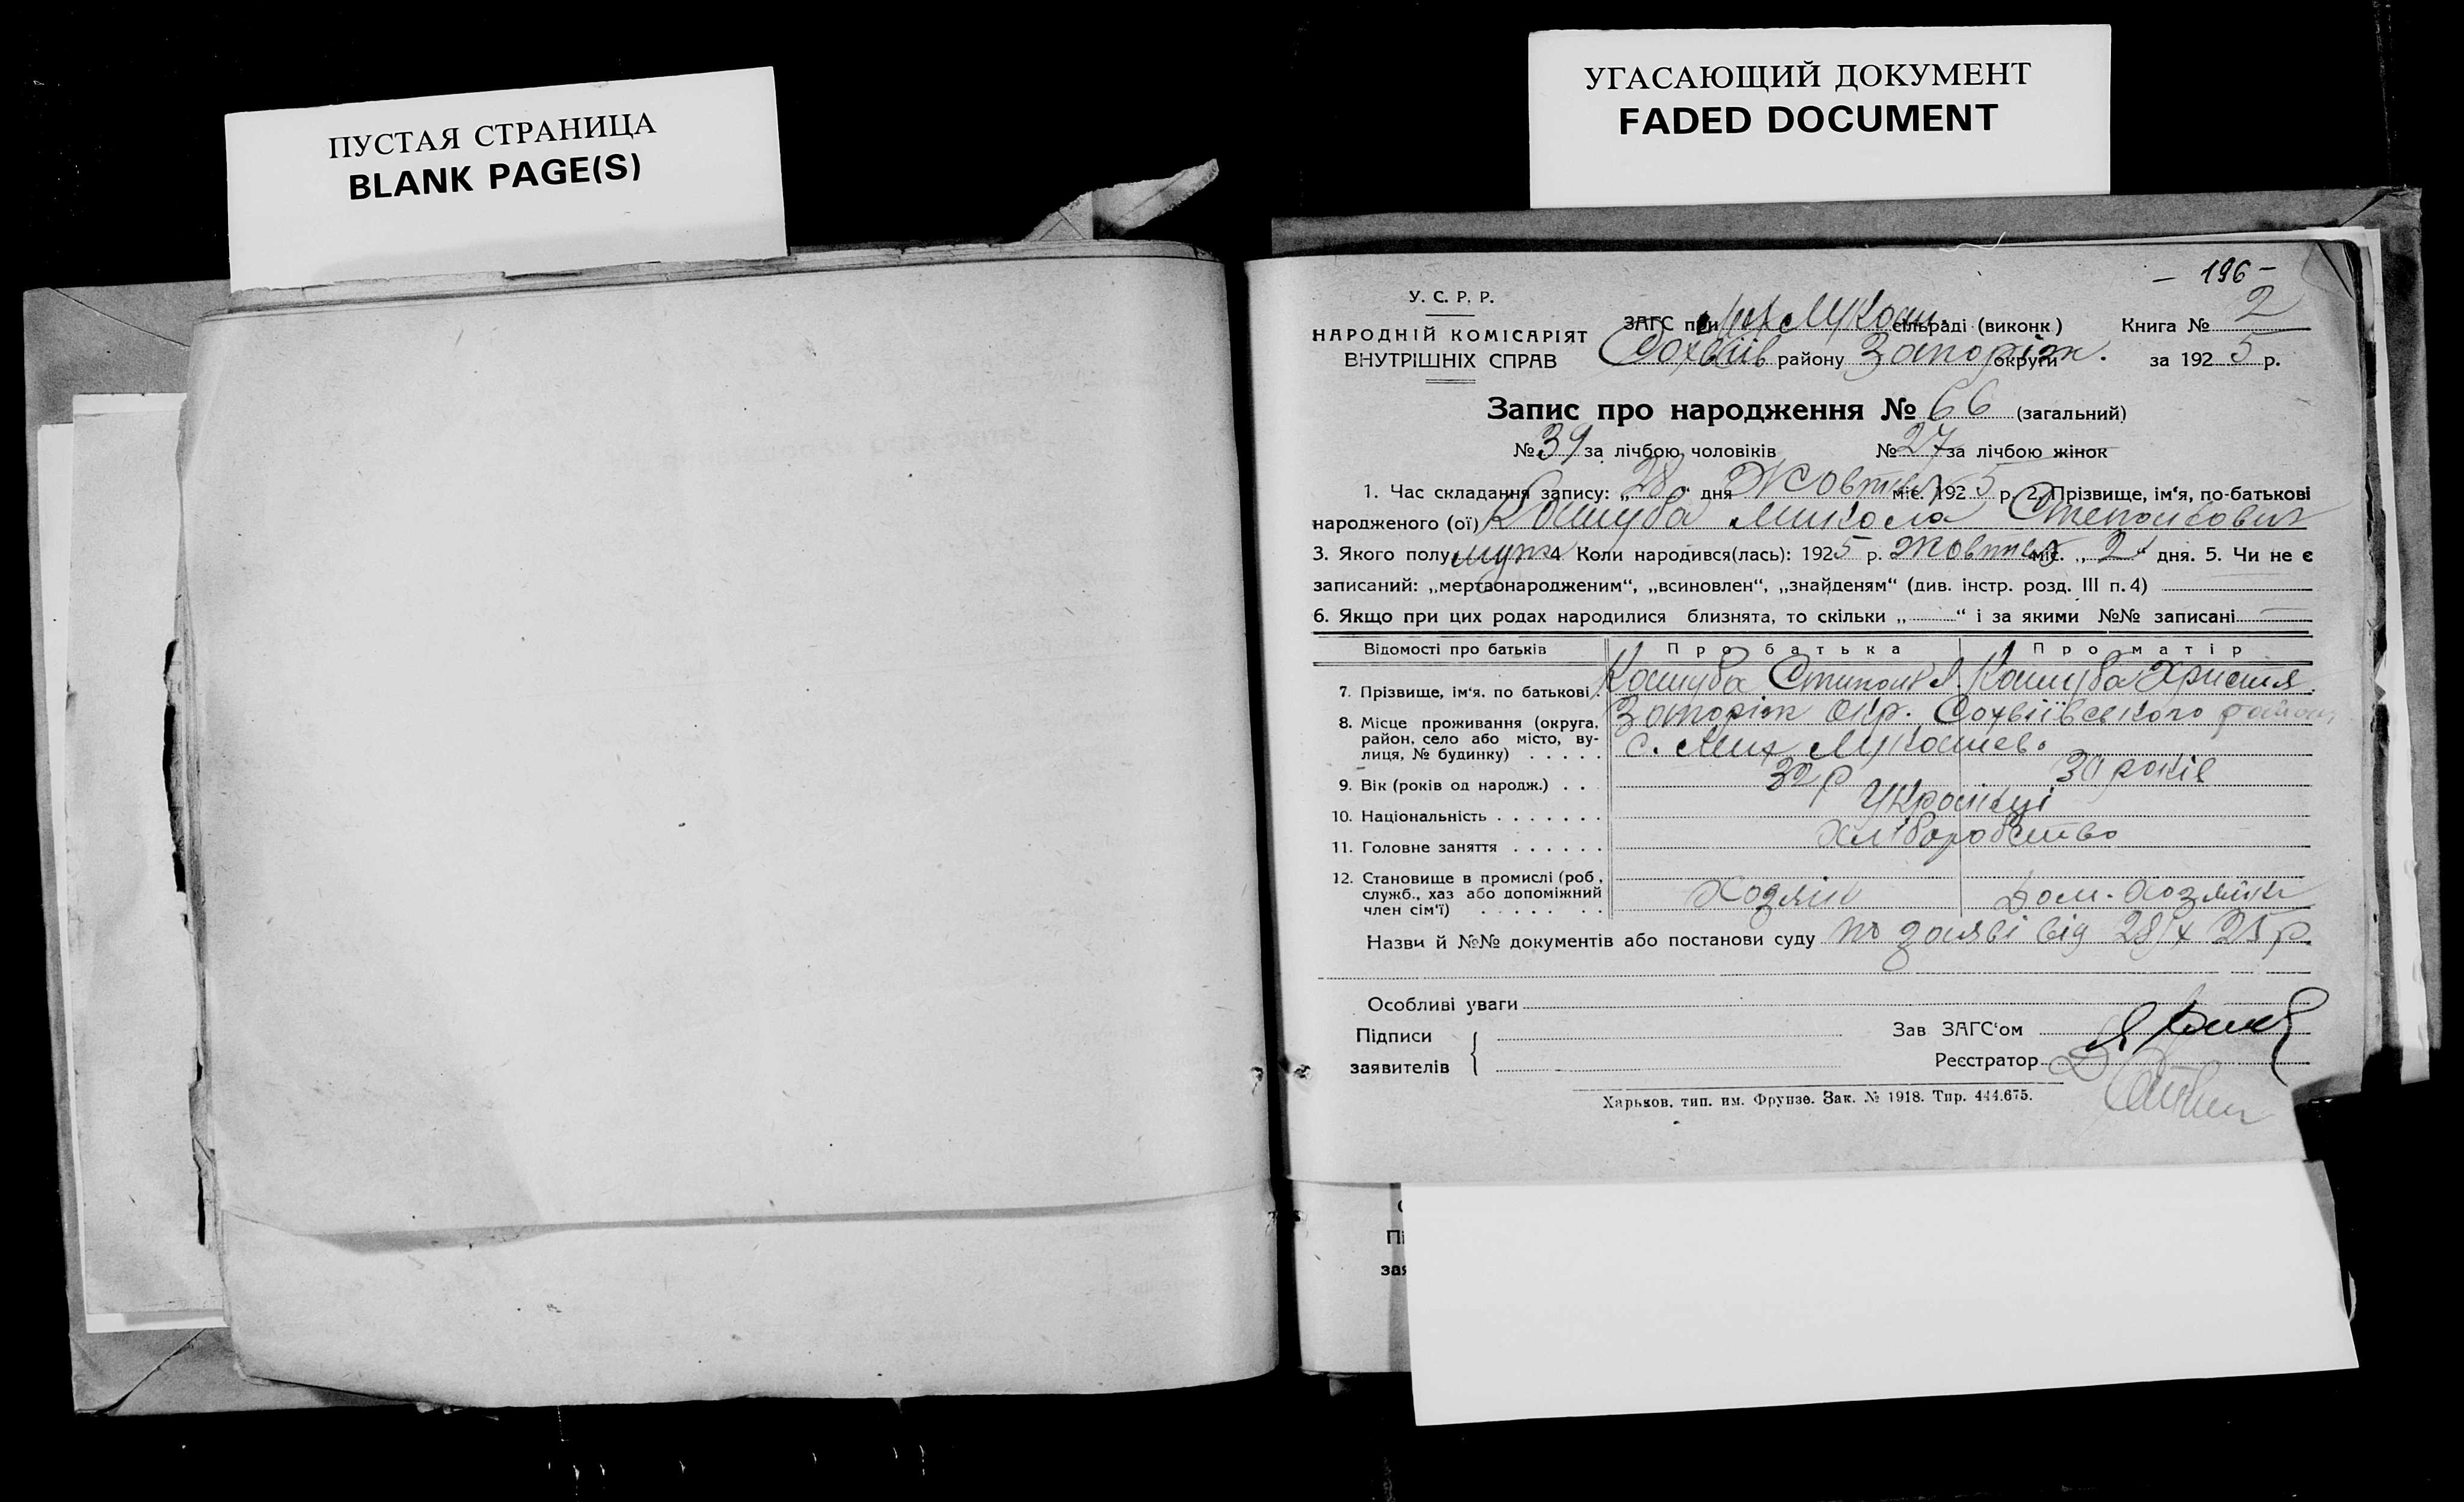 ПУСТАЯ СТРАНИЦА
BLANK PAGE(S)
УГАСАЮЩИЙ ДОКУМЕНТ
FADED DOCUMENT
– 196 –
У. С. Р. Р.
НАРОДНІЙ КОМІСАРІЯТ
ВНУТРІШНІХ СПРАВ
ЗАГС при сільраді (виконк)
Книга № 2
району Запоріж. округи
за 1925 р.
Запис про народження № 66 (загальний)
№ 39 за лічбою чоловіків № 27 за лічбою жінок
1. Час складання запису: „28" дня Жовтня міс. 1925 р. 2. Прізвище, ім'я, по-батькові
народженого (ої) Кашуба Микола Степанович
3. Якого полу муж 4 Коли народився(лась): 1925 р. Жовтня міс. „2" дня. 5. Чи не є
записаний: „мертвонародженим", „всиновлен", „знайденям" (див. інстр. розд. III п. 4)
6. Якщо при цих родах народилися близнята, то скільки „ " і за якими №№ записані
Відомості про батьків Про батька Про матір
7. Прізвище, ім'я. по батькові Кашуба Степан Кашуба Христя
8. Місце проживання (округа, район, село або місто, вулиця, № будинку) Запоріж Окр. Софіївського району
с. Мих Лукашево
9. Вік (років од народж.) 32 р 30 років
10. Національність Українці
11. Головне заняття Хліборобство
12. Становище в промислі (роб, служб., хаз або допоміжний член сім'ї) Хозяін Дом. хозяйка
Назви й №№ документів або постанови суду по заяві від 28/X 25 р
Особливі уваги
Підписи
заявителів
Зав ЗАГС'ом
Реєстратор
Харьков, тип. им. Фрунзе. Зак. № 1918. Тир. 444.675.
Пі
зая